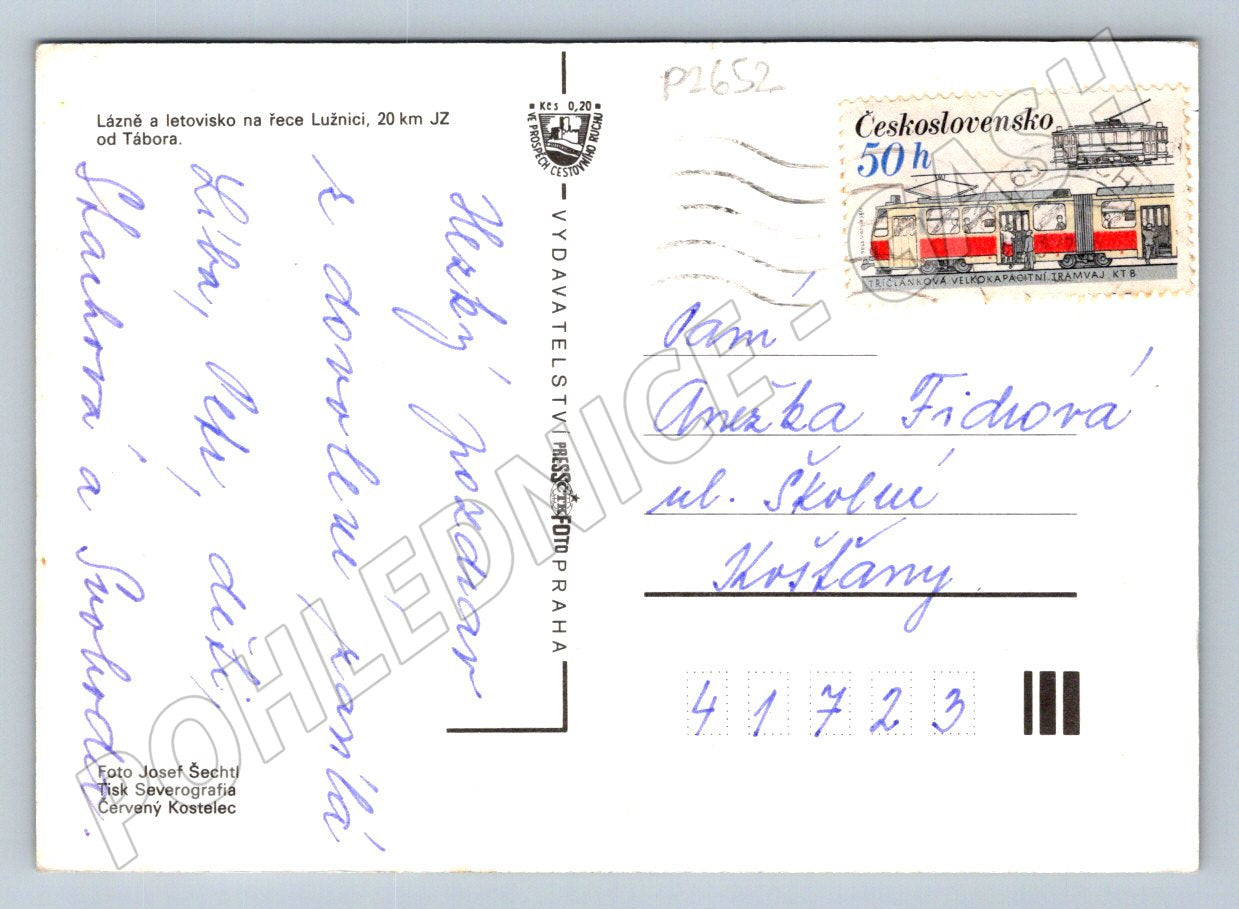 Lázně a letovisko na řece Lužnici, 20 km JZ
od Tábora.
Hezký pozdrav
z dovolené zasílá
Líba, Petr, děti,
Stachová a Svoboda.
Foto Josef Šechtl
Tisk Severografia
Červený Kostelec
Kčs 0,20
VE PROSPĚCH CESTOVNÍHO RUCHU
VYDAVATELSTVÍ PRESSFOTO PRAHA
ČTK
P2652
Československo
50 h
TŘÍČLÁNKOVÁ VELKOKAPACITNÍ TRAMVAJ KT 8
Vám.
Anežka Fidrová
ul. Školní
Košťany
41723
POHLEDNICE - CASH